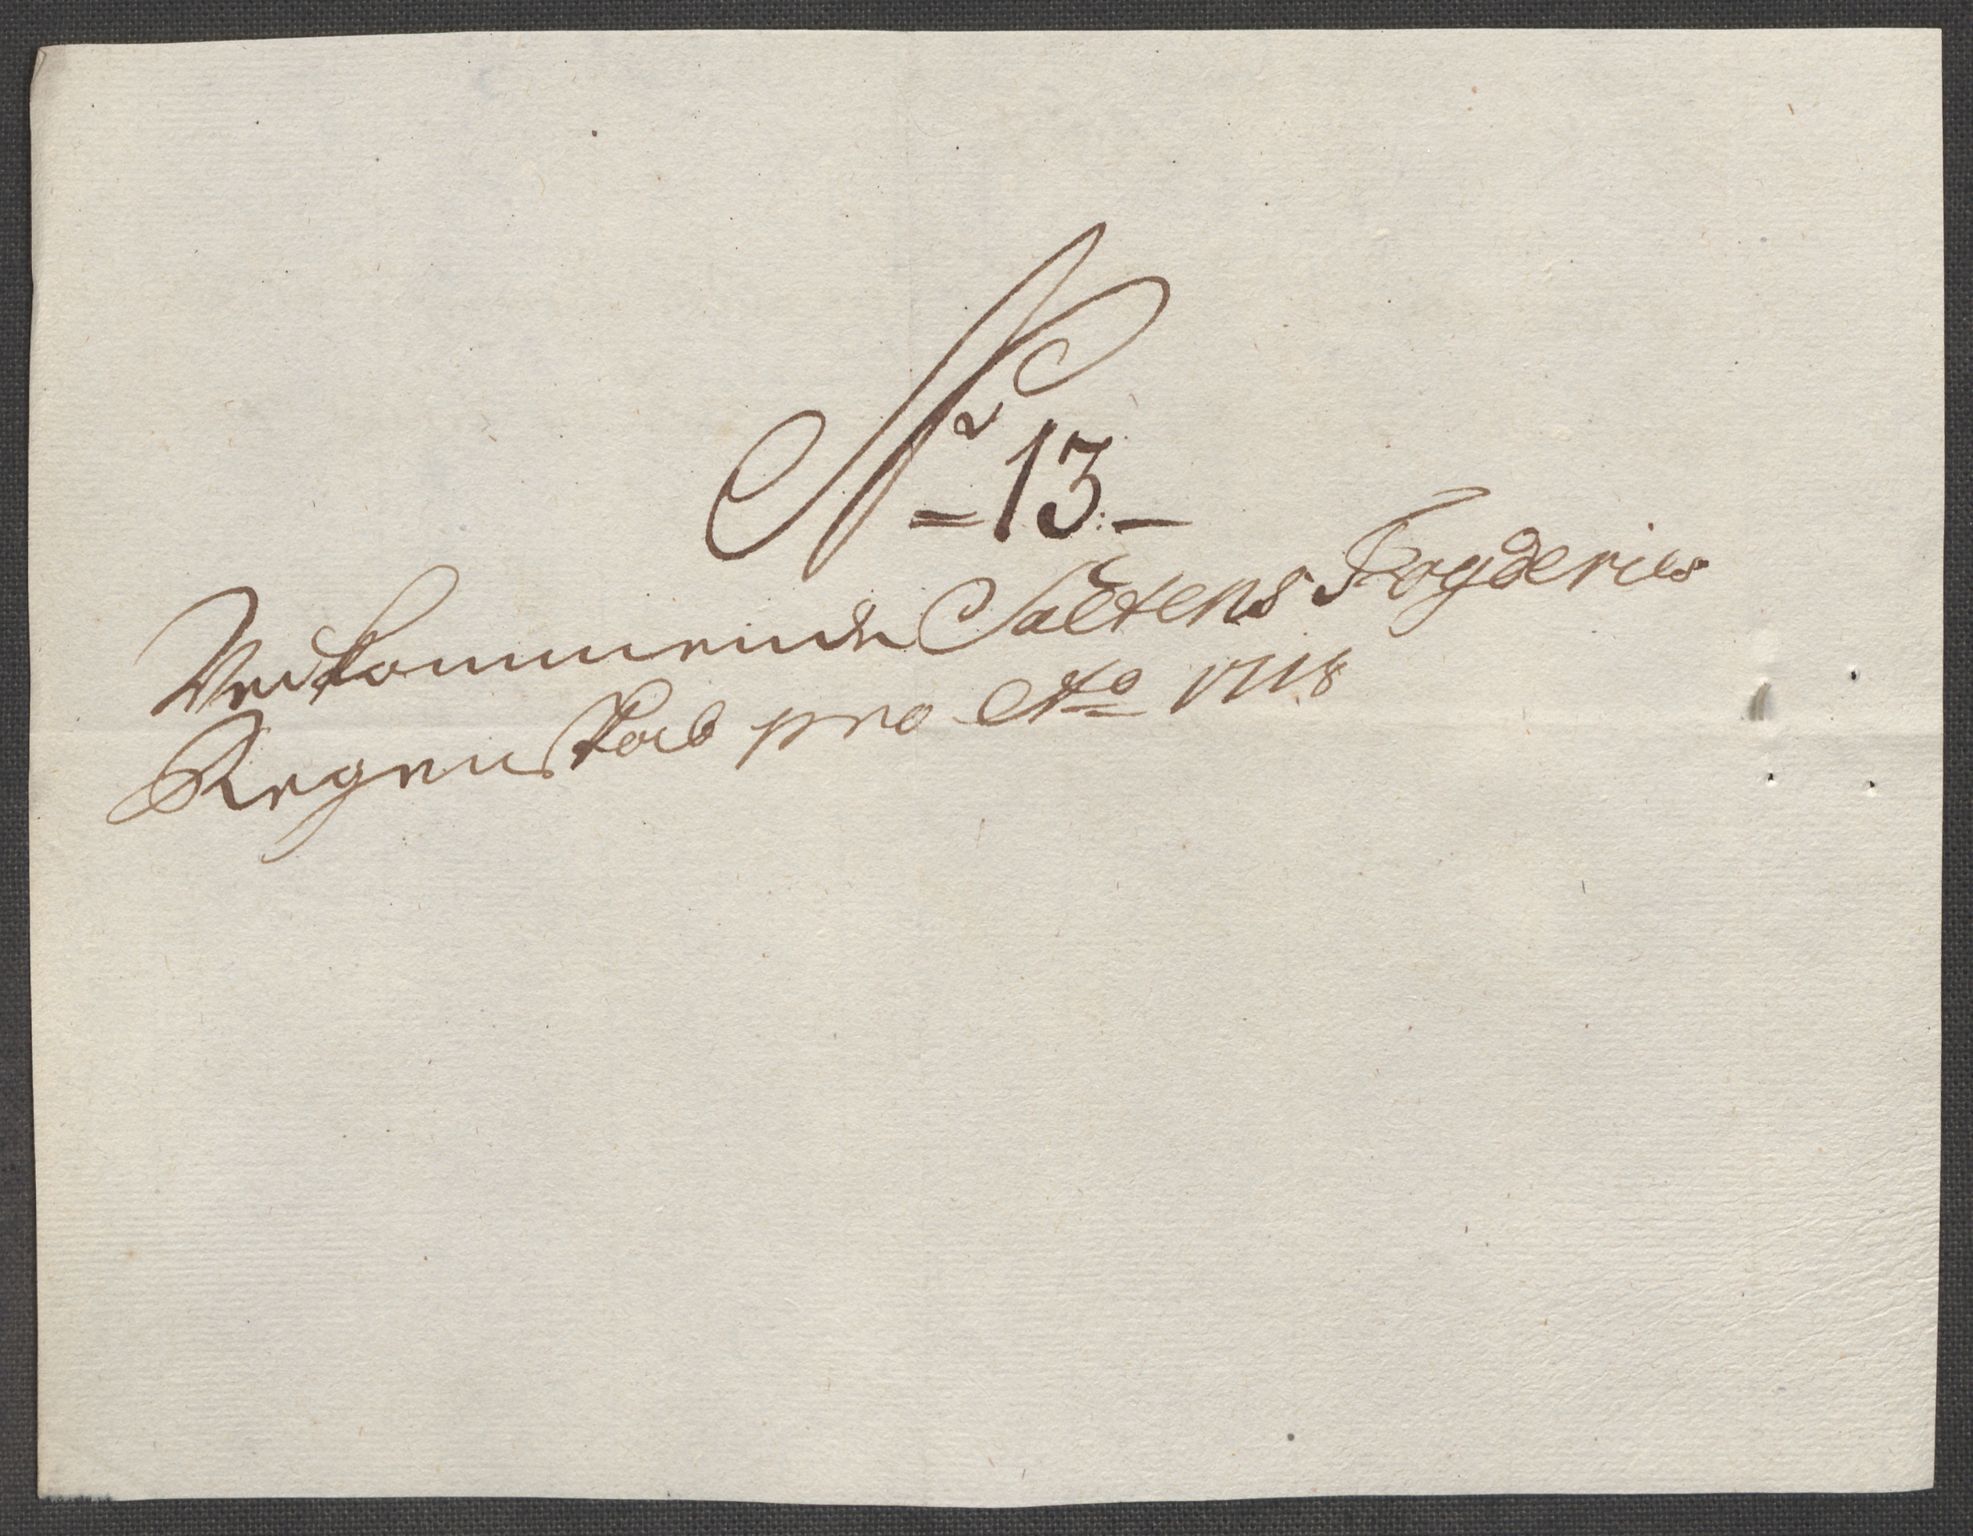 Nr 13.
Vedkommende Saltens Fogderies
Regenskab pro Ao 1718